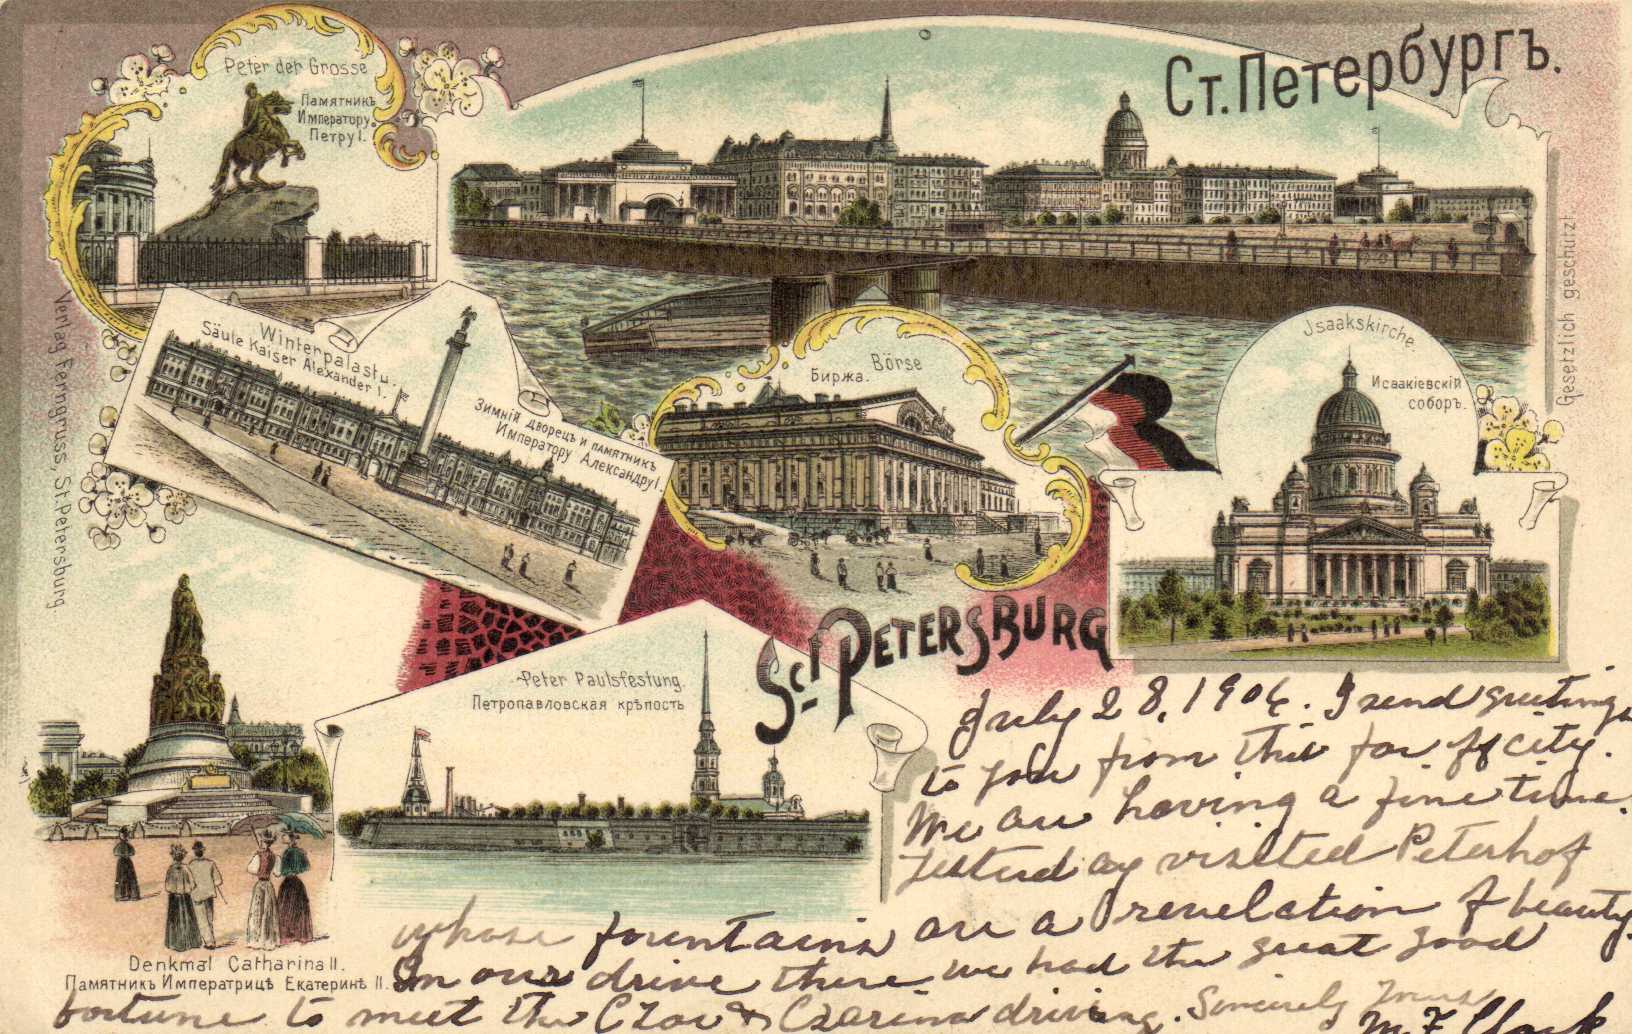 Peter der Grosse
Памятникъ
Императору
Петру I.
Ст. Петербургъ.
Winterpalast u.
Säule Kaiser Alexander I.
Зимній дворецъ и памятникъ
Императору Александру I.
Börse
Биржа.
Jsaakskirche.
Исаакіевскій
соборъ.
Gesetzlich geschützt
Verlag Ferngruss, St. Petersburg
Sct. Petersburg
Peter Paulsfestung.
Петропавловская крѣпость
Denkmal Catharina II.
Памятникъ Императрицѣ Екатеринѣ II.
July 28, 1906. I send greetings
to you from this far off city.
We are having a fine time.
Yesterday visited Peterhof
whose fountains are a revelation of beauty.
In our drive there we had the great good
fortune to meet the Czar & Czarina driving. Sincerely Yours
M. F. Clark